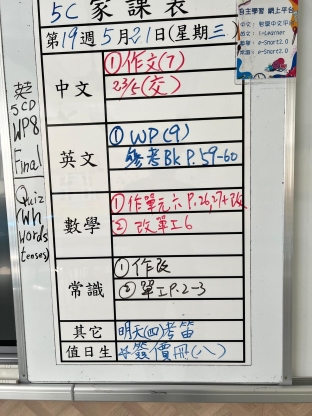 5C 家課表
第19週5月21日(星期三)
自主學習 網上平台
英: i-Learner
中文
①作文(7)
23/5(交)
英文
① WP(9)
參考Bk P.59-60
數學
①作單元六 P.26,27+改
② 改單工6
常識
①作改
②單工P.2-3
其它
明天(四)考笛
值日生
☆簽價冊(八)
5CD
WP8
Final
Quiz
(wh
words
tenses)